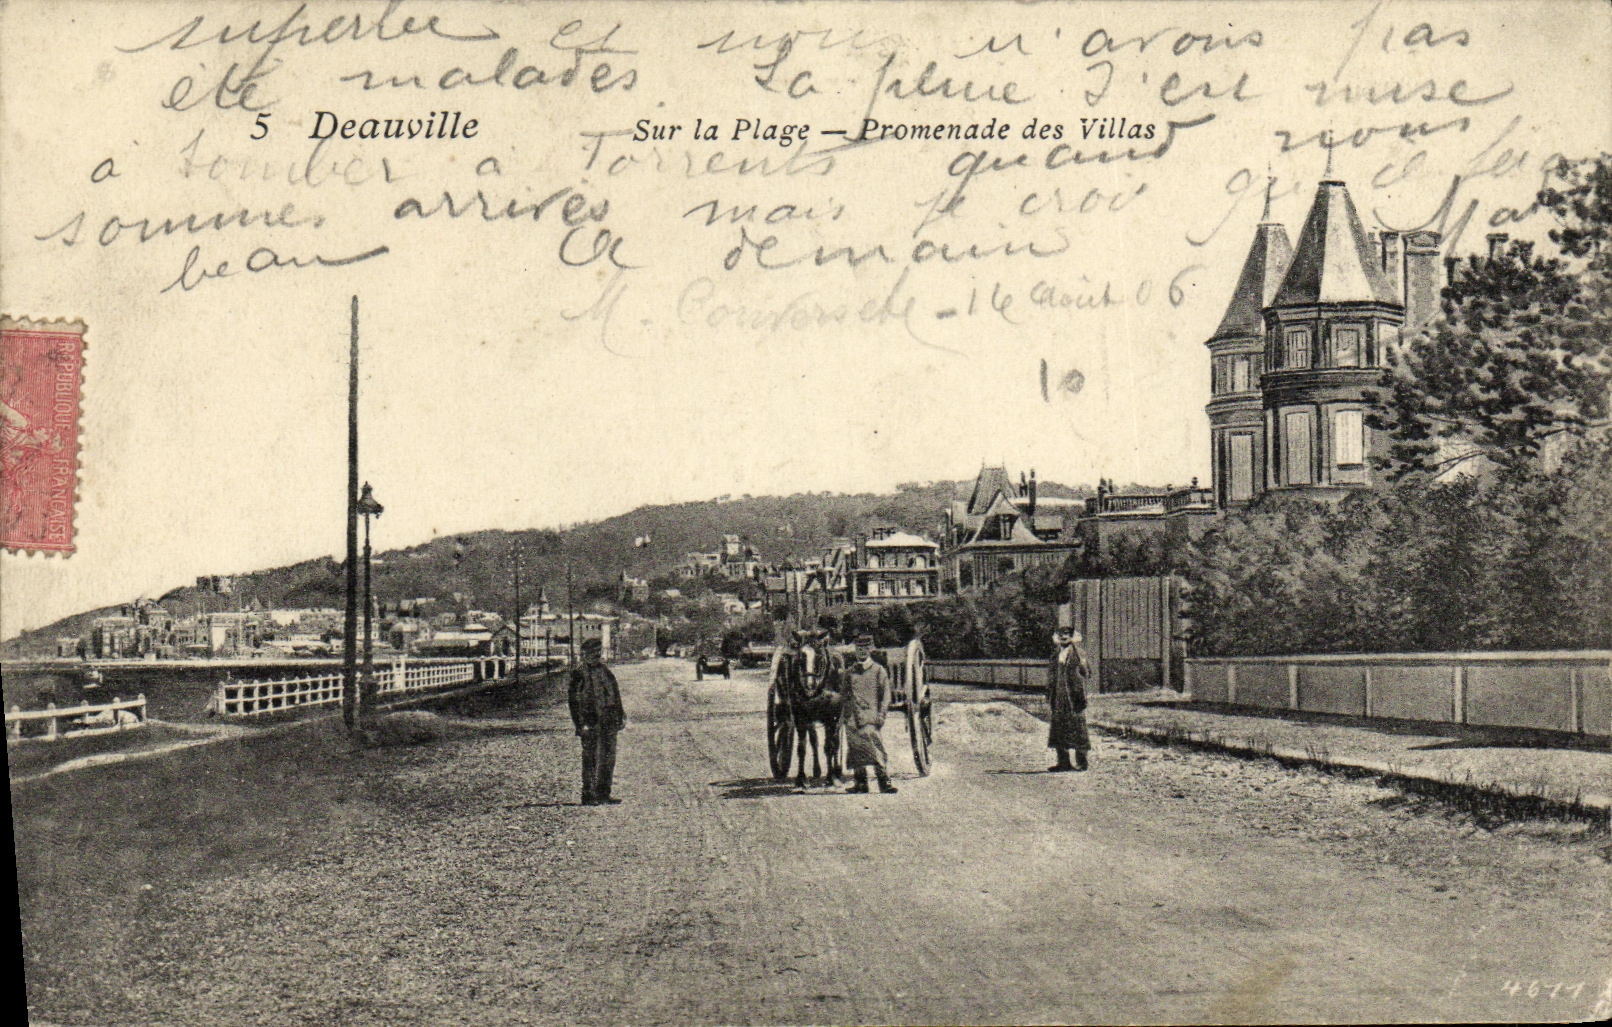 superbe et nous n'avons pas
été malades. La pluie s'est mise
5 Deauville Sur la Plage — Promenade des Villas
à tomber à Torrents quand nous
sommes arrivés mais je crois qu'il fera
beau A demain
M. 16 Août 06
10
REPUBLIQUE FRANÇAISE
4677